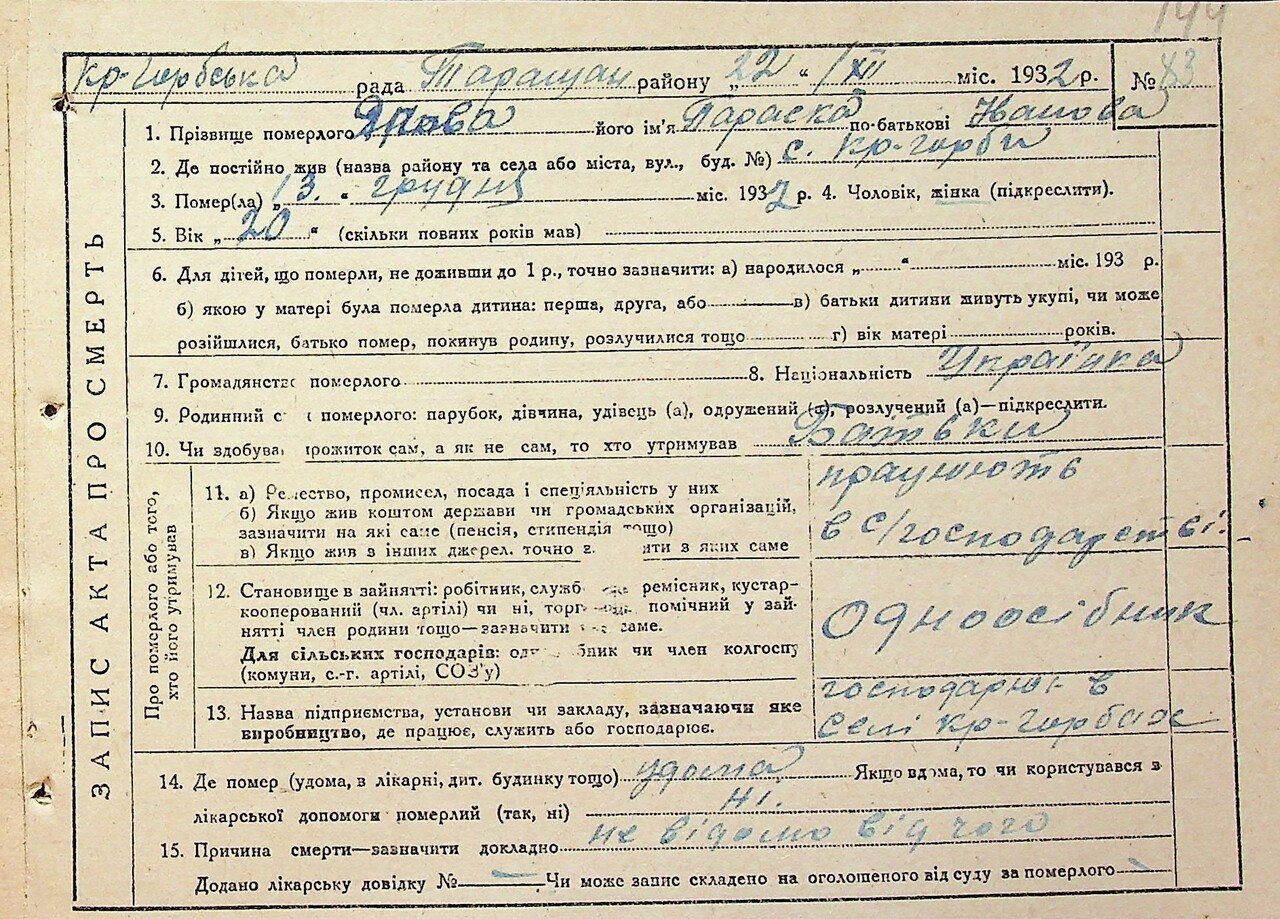 144
кр-Горбська рада Таращан району „22“ /XII міс. 1932 р. № 83
ЗАПИС АКТА ПРО СМЕРТЬ
1. Прізвище померлого його ім'я Параска по-батькові Іванова
2. Де постійно жив (назва району та села або міста, вул., буд. №) с. кр-горби
3. Помер(ла) „13.“ грудня міс. 1932 р. 4. Чоловік, жінка (підкреслити).
5. Вік „20“ (скільки повних років мав)
6. Для дітей, що померли, не доживши до 1 р., точно зазначити: а) народилося „ “ міс. 193 р.
б) якою у матері була померла дитина: перша, друга, або в) батьки дитини живуть укупі, чи може
розійшлися, батько помер, покинув родину, розлучилися тощо г) вік матері років.
7. Громадянство померлого 8. Національність Українка
9. Родинний с померлого: парубок, дівчина, удівець (а), одружений (а), розлучений (а)—підкреслити.
10. Чи здобував прожиток сам, а як не сам, то хто утримував Батьки
Про померлого або того,
хто його утримував
11. а) Ремество, промисел, посада і спеціяльність у них
б) Якщо жив коштом держави чи громадських організацій,
зазначити на які саме (пенсія, стипендія тощо)
в) Якщо жив з інших джерел. точно з яких саме
працюють
в с/господарстві.
12. Становище в зайнятті: робітник, служб ремісник, кустар-
кооперований (чл. артілі) чи ні, торг помічний у зай-
нятті член родини тощо—зазначити саме.
Для сільських господарів: одноосібник чи член колгоспу
(комуни, с.-г. артілі, СОЗ'у)
одноосібник
13. Назва підприємства, установи чи закладу, зазначаючи яке
виробництво, де працює, служить або господарює.
господарює в
селі кр-горбах
14. Де помер (удома, в лікарні, дит. будинку тощо) удома Якщо вдома, то чи користувався з
лікарської допомоги померлий (так, ні) ні.
15. Причина смерти—зазначити докладно не відомо від чого
Додано лікарську довідку № — Чи може запис складено на оголошеного від суду за померлого —